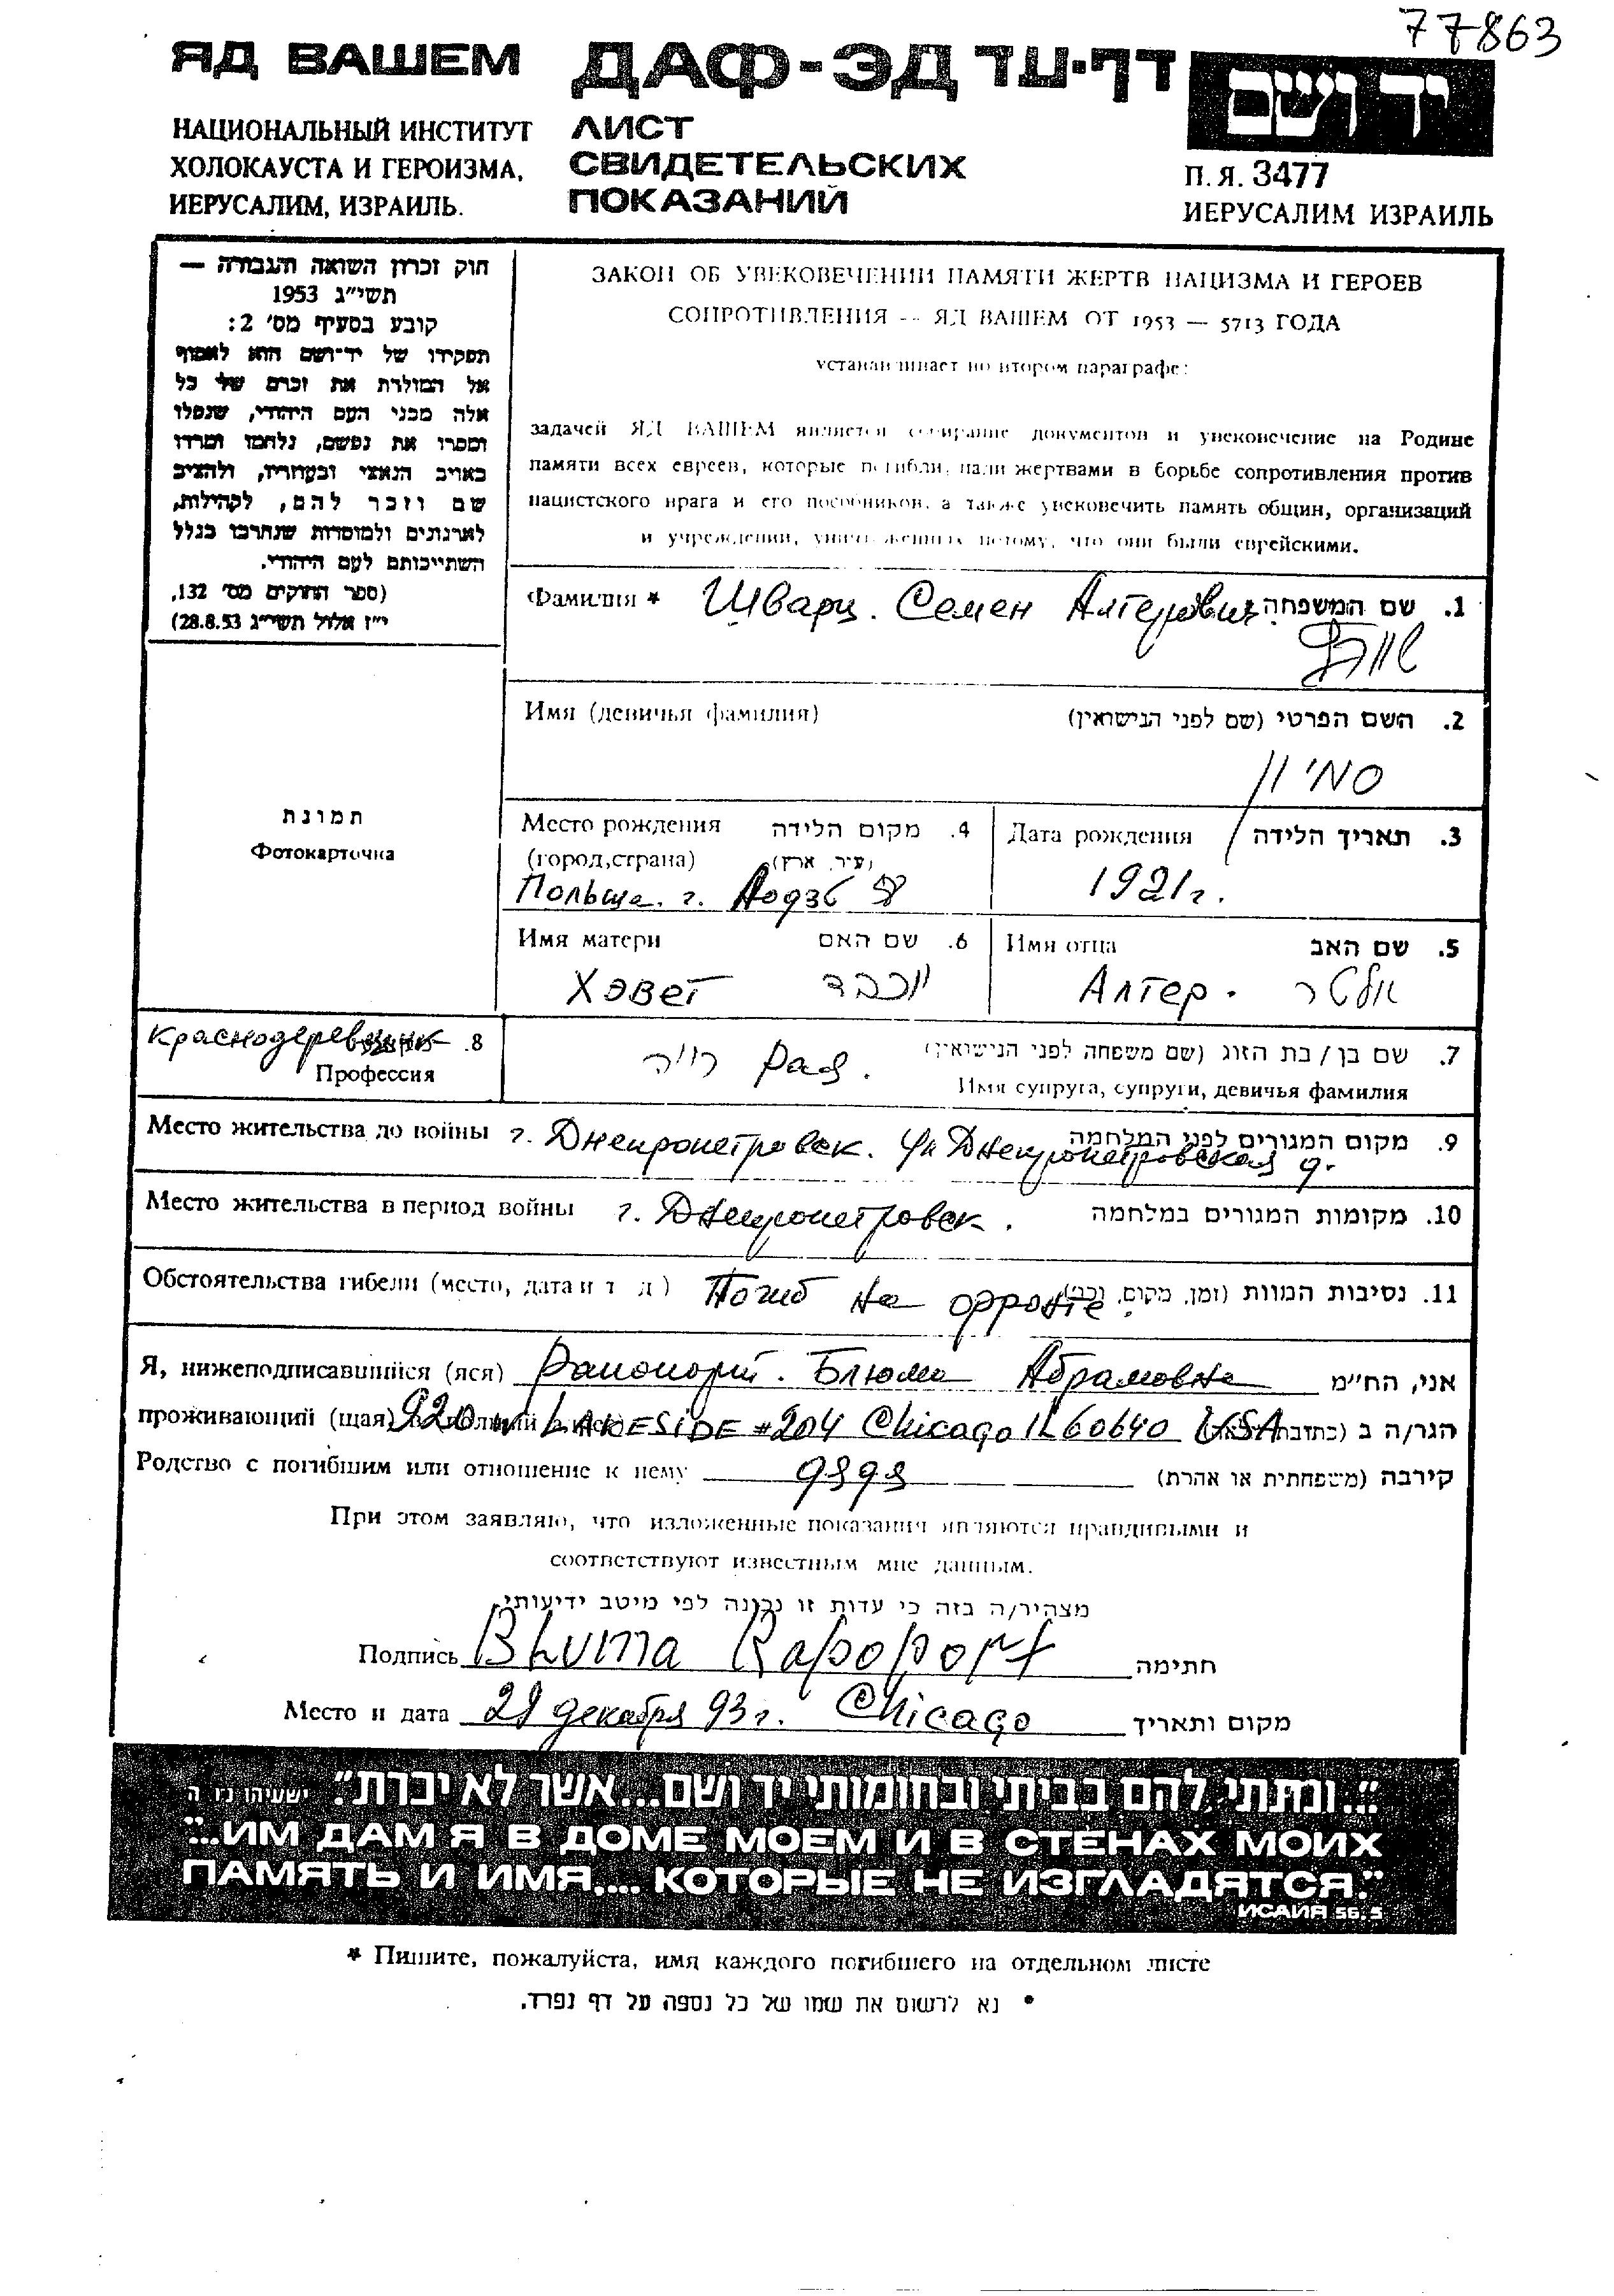 77863
ЯД ВАШЕМ ДАФ-ЭД דף-עד יד ושם
НАЦИОНАЛЬНЫЙ ИНСТИТУТ
ХОЛОКАУСТА И ГЕРОИЗМА,
ИЕРУСАЛИМ, ИЗРАИЛЬ.
ЛИСТ
СВИДЕТЕЛЬСКИХ
ПОКАЗАНИЙ
П. Я. 3477
ИЕРУСАЛИМ ИЗРАИЛЬ
חוק זכרון השואה והגבורה —
תשי״ג 1953
קובע בסעיף מס׳ 2:
תפקידו של יד־ושם הוא לאסוף
אל המולדת את זכרם של כל
אלה מבני העם היהודי, שנפלו
ומסרו את נפשם, נלחמו ומרדו
באויב הנאצי ובעוזריו, ולהציב
שם וזכר להם, לקהילות,
לארגונים ולמוסדות שנחרבו בגלל
השתייכותם לעם היהודי.
(ספר החוקים מס׳ 132,
י״ז אלול תשי״ג 28.8.53)
ЗАКОН ОБ УВЕКОВЕЧЕНИИ ПАМЯТИ ЖЕРТВ НАЦИЗМА И ГЕРОЕВ
СОПРОТИВЛЕНИЯ -- ЯД ВАШЕМ ОТ 1953 — 5713 ГОДА
устанавливает во втором параграфе:
задачей ЯД ВАШЕМ является собирание документов и увековечение на Родине
памяти всех евреев, которые погибли, пали жертвами в борьбе сопротивления против
нацистского врага и его пособников, а также увековечить память общин, организаций
и учреждений, уничтоженных потому, что они были еврейскими.
Фамилия * Шварц. Семен Алтерович שם המשפחה .1
שוורץ
Имя (девичья фамилия) השם הפרטי (שם לפני הנישואין) .2
סמיון
תמונת
Фотокарточка
Место рождения מקום הלידה .4
(город,страна) (עיר, ארץ)
Польша. г. Лодзь
Дата рождения תאריך הלידה .3
1921г.
Имя матери שם האם .6
Хэвет יוכבד
Имя отца שם האב .5
Алтер. אלטר
Краснодеревщик .8
Профессия
רויה Рая. שם בן / בת הזוג (שם משפחה לפני הנישואין) .7
Имя супруга, супруги, девичья фамилия
Место жительства до войны г. Днепропетровск. ул Днепропетровская 9. מקום המגורים לפני המלחמה .9
Место жительства в период войны г. Днепропетровск. מקומות המגורים במלחמה .10
Обстоятельства гибели (место, дата и т д) Погиб на фронте. נסיבות המוות (זמן, מקום, וכו׳) .11
Я, нижеподписавшийся (яся) Рапопорт. Блюма Абрамовна אני, הח״מ
проживающий (щая) 920 W LAKESIDE #204 Chicago IL 60640 USA הגר/ה ב
Родство с погибшим или отношение к нему дядя קירבה (משפחתית או אחרת)
При этом заявляю, что изложенные показания являются правдивыми и
соответствуют известным мне данным.
מצהיר/ה בזה כי עדות זו נכונה לפי מיטב ידיעותי.
Подпись Bluma Rapoport חתימה
Место и дата 29 декабря 93г. Chicago מקום ותאריך
״...ונתתי להם בביתי ובחומותי יד ושם...אשר לא יכרת״. ישעיהו נו ה
"...ИМ ДАМ Я В ДОМЕ МОЕМ И В СТЕНАХ МОИХ
ПАМЯТЬ И ИМЯ,... КОТОРЫЕ НЕ ИЗГЛАДЯТСЯ."
ИСАЙЯ 56. 5
* Пишите, пожалуйста, имя каждого погибшего на отдельном листе
* נא לרשום את שמו של כל נספה על דף נפרד.